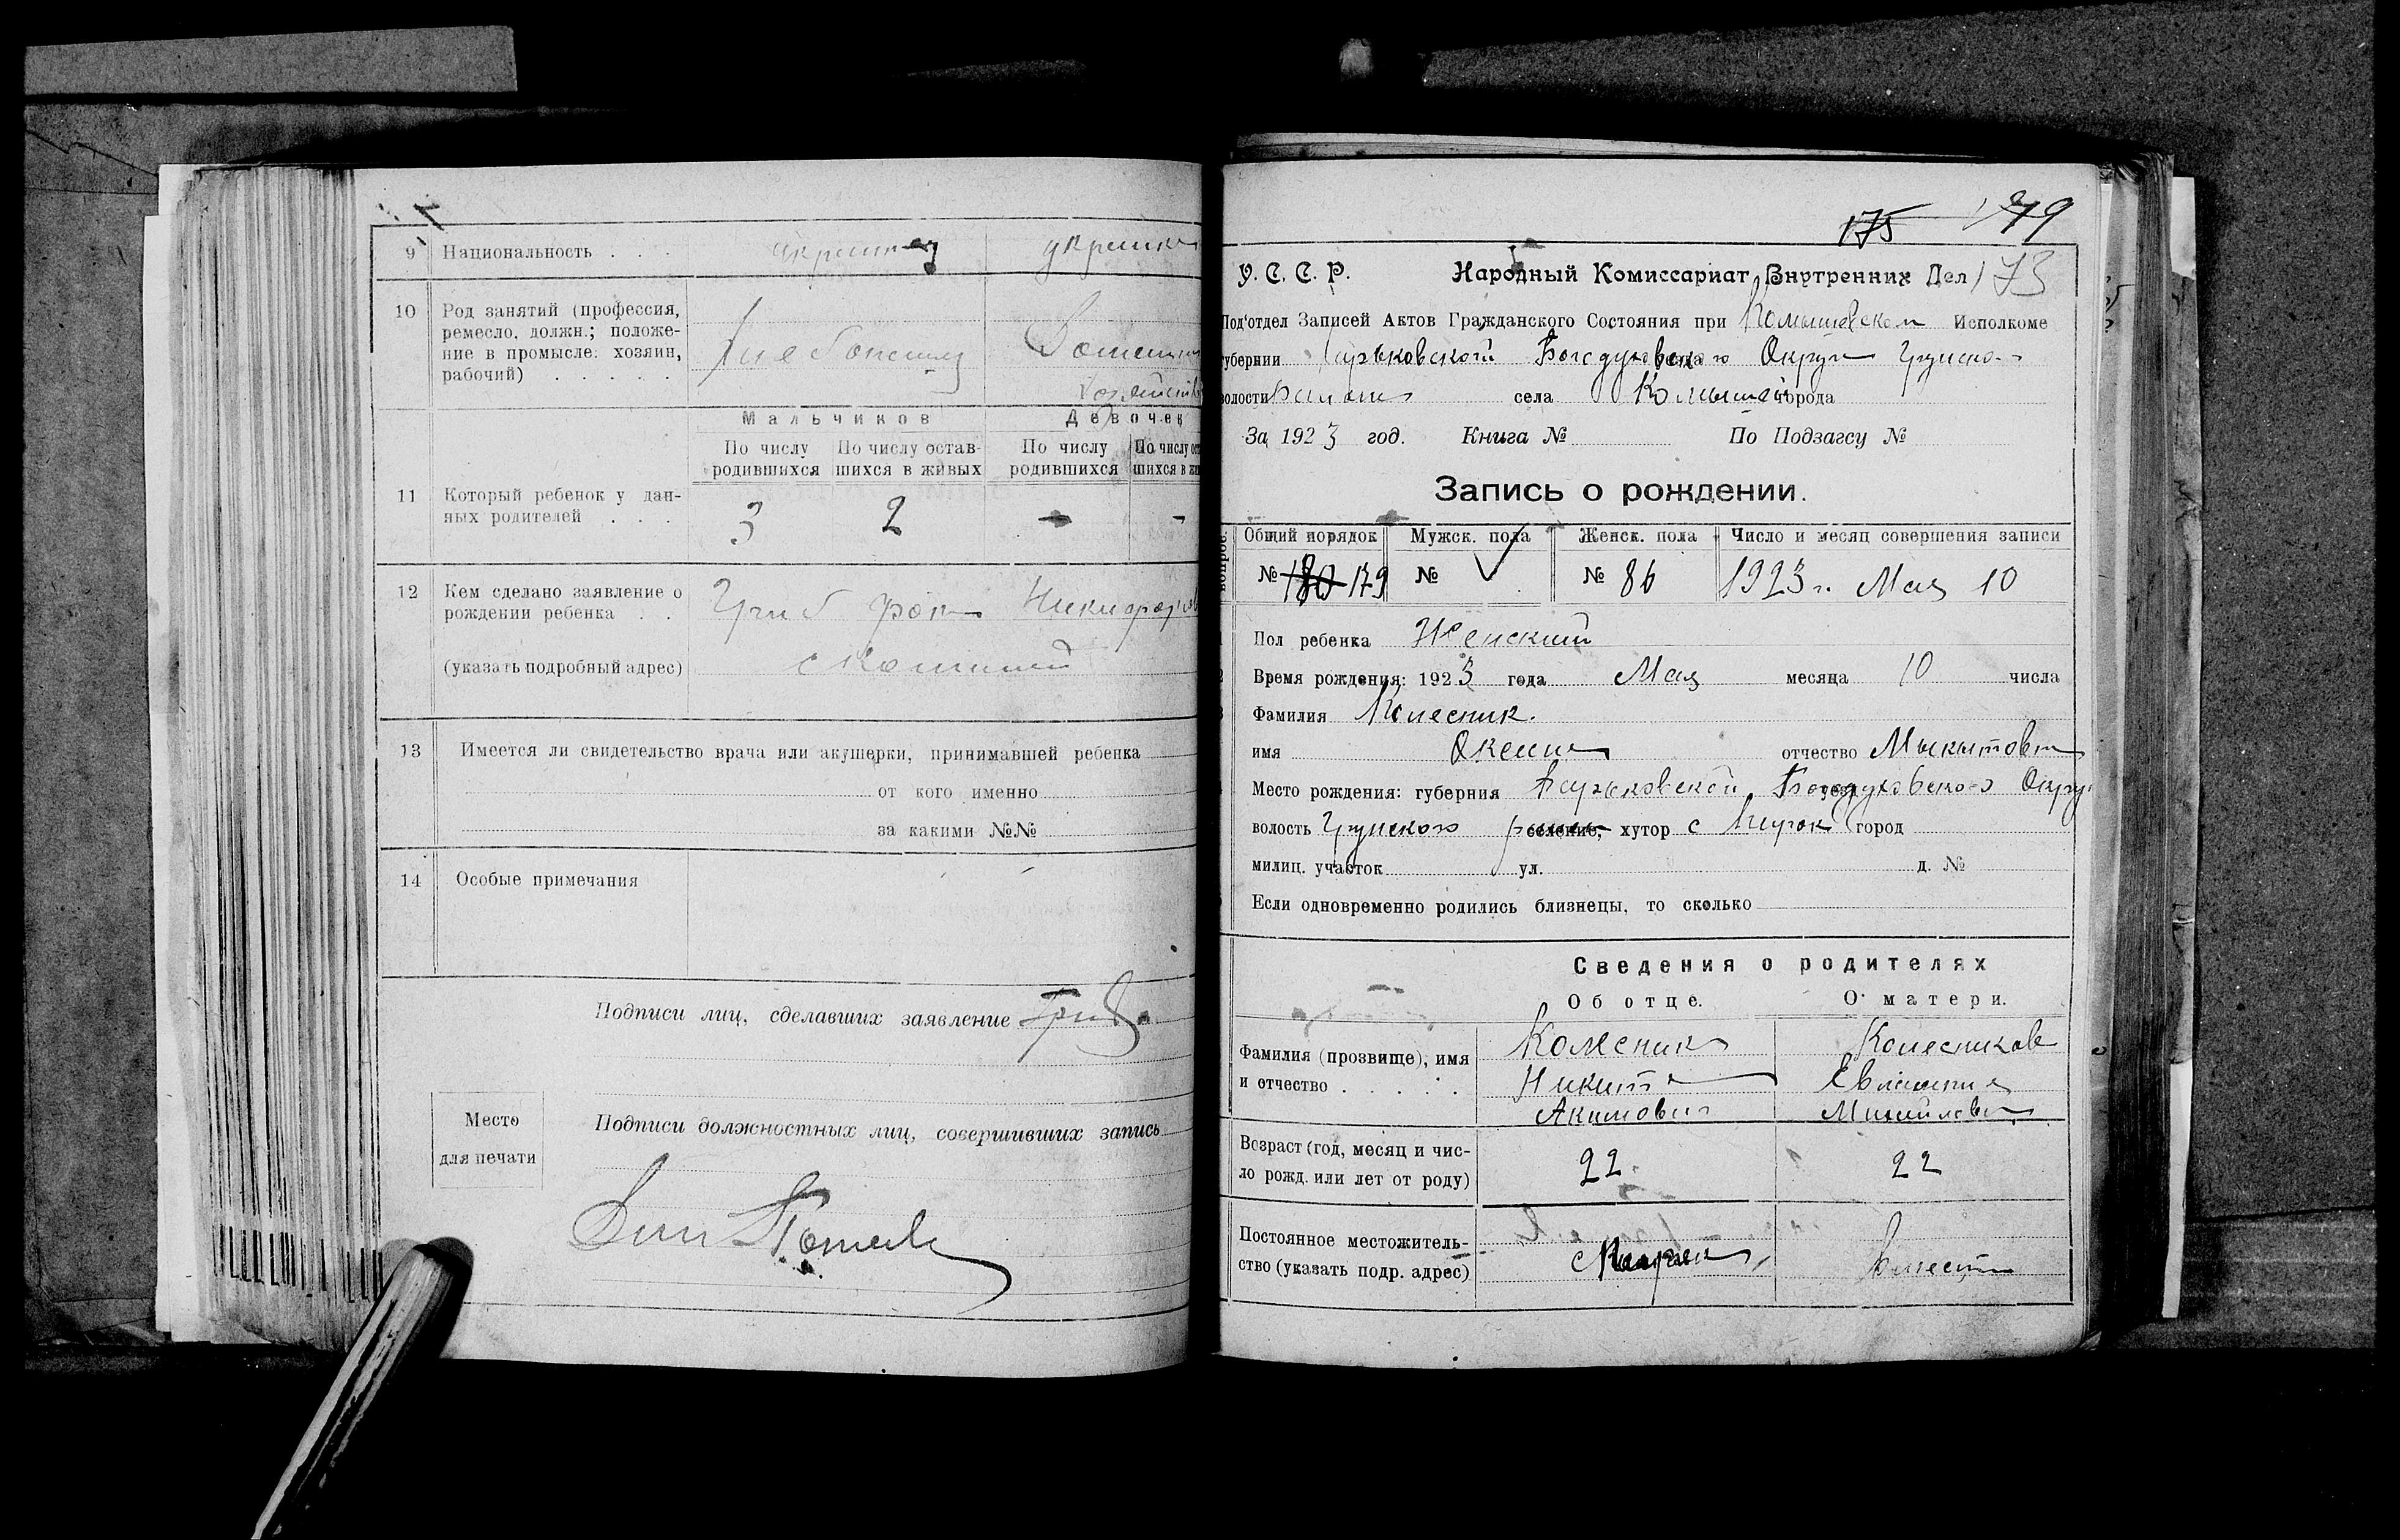 9 Национальность . . . украинец украинка
10 Род занятий (профессия,
ремесло, должн.; положе-
ние в промысле: хозяин,
рабочий) . . . . . Хлебопашец Домашнее
хозяйство
Мальчиков Девочек
По числу По числу остав- По числу По числу ост
родившихся шихся в живых родившихся шихся в жи
11 Который ребенок у дан-
ных родителей . . . 3 2 - -
12 Кем сделано заявление о
рождении ребенка . . Гриб Никифоров
(указать подробный адрес)
13 Имеется ли свидетельство врача или акушерки, принимавшей ребенка
от кого именно
за какими №№
14 Особые примечания
Подписи лиц, сделавших заявление Гриб
Место
для печати
Подписи должностных лиц, совершивших запись
175 179
У. С. С. Р. Народный Комиссариат Внутренних Дел 173
Под'отдел Записей Актов Гражданского Состояния при Комышевском Исполкоме
губернии Харьковской Богодуховского Округа Грунско-
волости села Комышей города
За 1923 год. Книга № По Подзагсу №
Запись о рождении.
вопрос. Общий порядок Мужск. пола Женск. пола Число и месяц совершения записи
№ 180 179 № № 86 1923 г. Мая 10
Пол ребенка Женский
Время рождения: 1923 года Мая месяца 10 числа
Фамилия Колесник.
имя отчество Мыкытовна
Место рождения: губерния Харьковской Богодуховского Округ
волость Грунского селение, хутор с город
милиц. участок ул. д. №
Если одновременно родились близнецы, то сколько
Сведения о родителях
Об отце. О матери.
Фамилия (прозвище), имя
и отчество . . . . .
Колесник
Никита
Акимович
Колесникова
Евлампия
Михайловна
Возраст (год, месяц и чис-
ло рожд. или лет от роду) 22 22
Постоянное местожитель-
ство (указать подр. адрес)